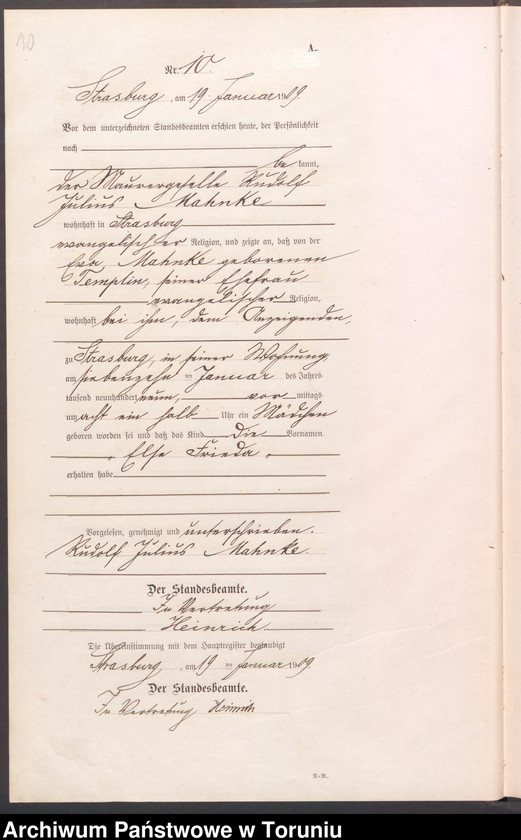 10
A.
Nr. 10
Strasburg, am 19 Januar 1909.
Vor dem unterzeichneten Standesbeamten erschien heute, der Persönlichkeit
nach
be kannt,
der Maurergeselle Rudolf
Julius Mahnke
wohnhaft in Strasburg
evangelischer Religion, und zeigte an, daß von der
Eva Mahnke geborenen
Templin, seiner Ehefrau
evangelischer Religion,
wohnhaft bei ihm, dem Anzeigenden,
zu Strasburg, in seiner Wohnung
am siebenzehn ten Januar des Jahres
tausend neunhundert neun, vor mittags
um acht ein halb Uhr ein Mädchen
geboren worden sei und daß das Kind die Vornamen
„Else Frieda“
erhalten habe.
Vorgelesen, genehmigt und unterschrieben.
Rudolf Julius Mahnke.
Der Standesbeamte.
In Vertretung
Heinrich
Die Übereinstimmung mit dem Hauptregister beglaubigt
Strasburg, am 19 ten Januar 1909.
Der Standesbeamte.
In Vertretung Heinrich
Archiwum Państwowe w Toruniu